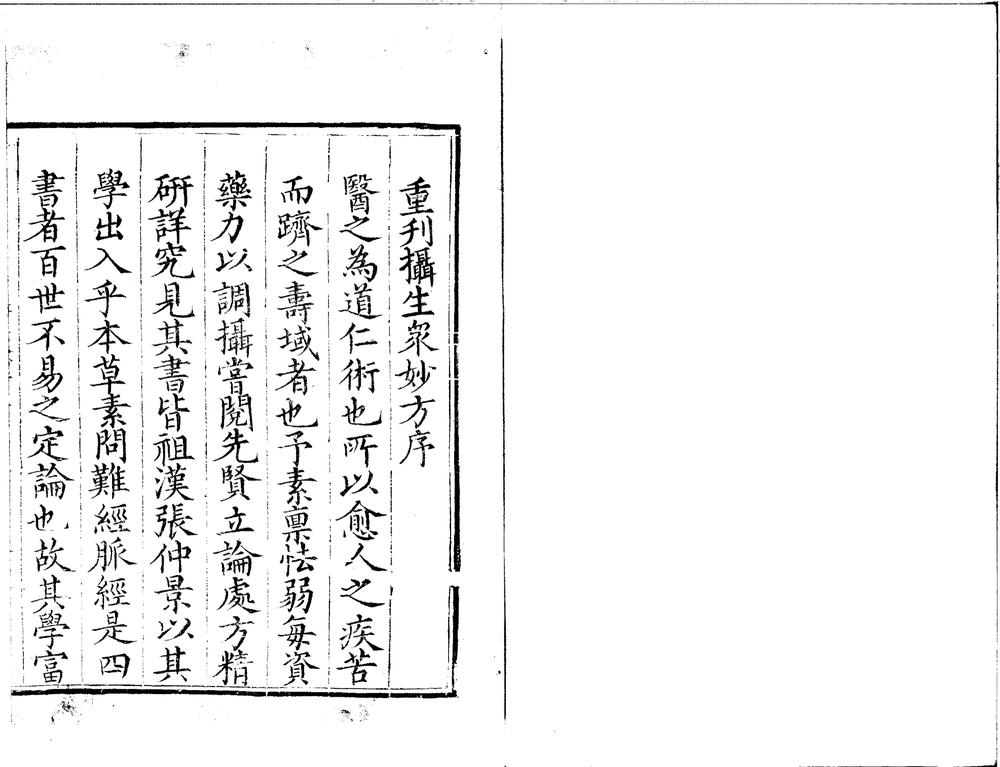 重刋攝生衆妙方序
醫之為道仁術也所以愈人之疾苦
而躋之壽域者也予素禀怯弱每資
藥力以調攝嘗閱先賢立論處方精
研詳究見其書皆祖漢張仲景以其
學出入乎本草素問難經脈經是四
書者百世不易之定論也故其學富